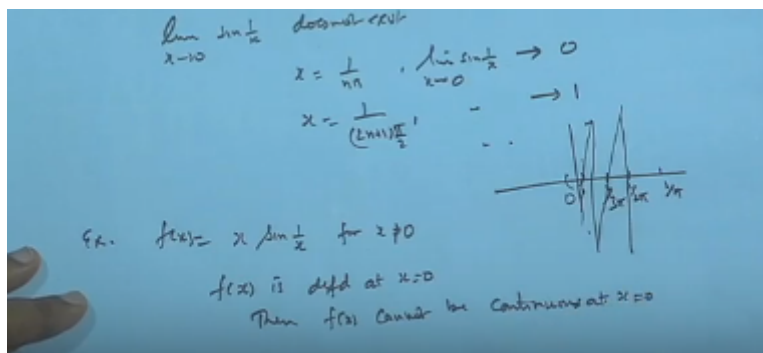 lim x→0 sin 1/x does not exist
x = 1/nπ , lim x→0 sin 1/x → 0
x = 1/(2n+1)π/2 , " → 1
0 1/3π 1/2π 1/π
Ex. f(x) = x sin 1/x for x ≠ 0
f(x) is defd at x=0
Then f(x) cannot be continuous at x=0